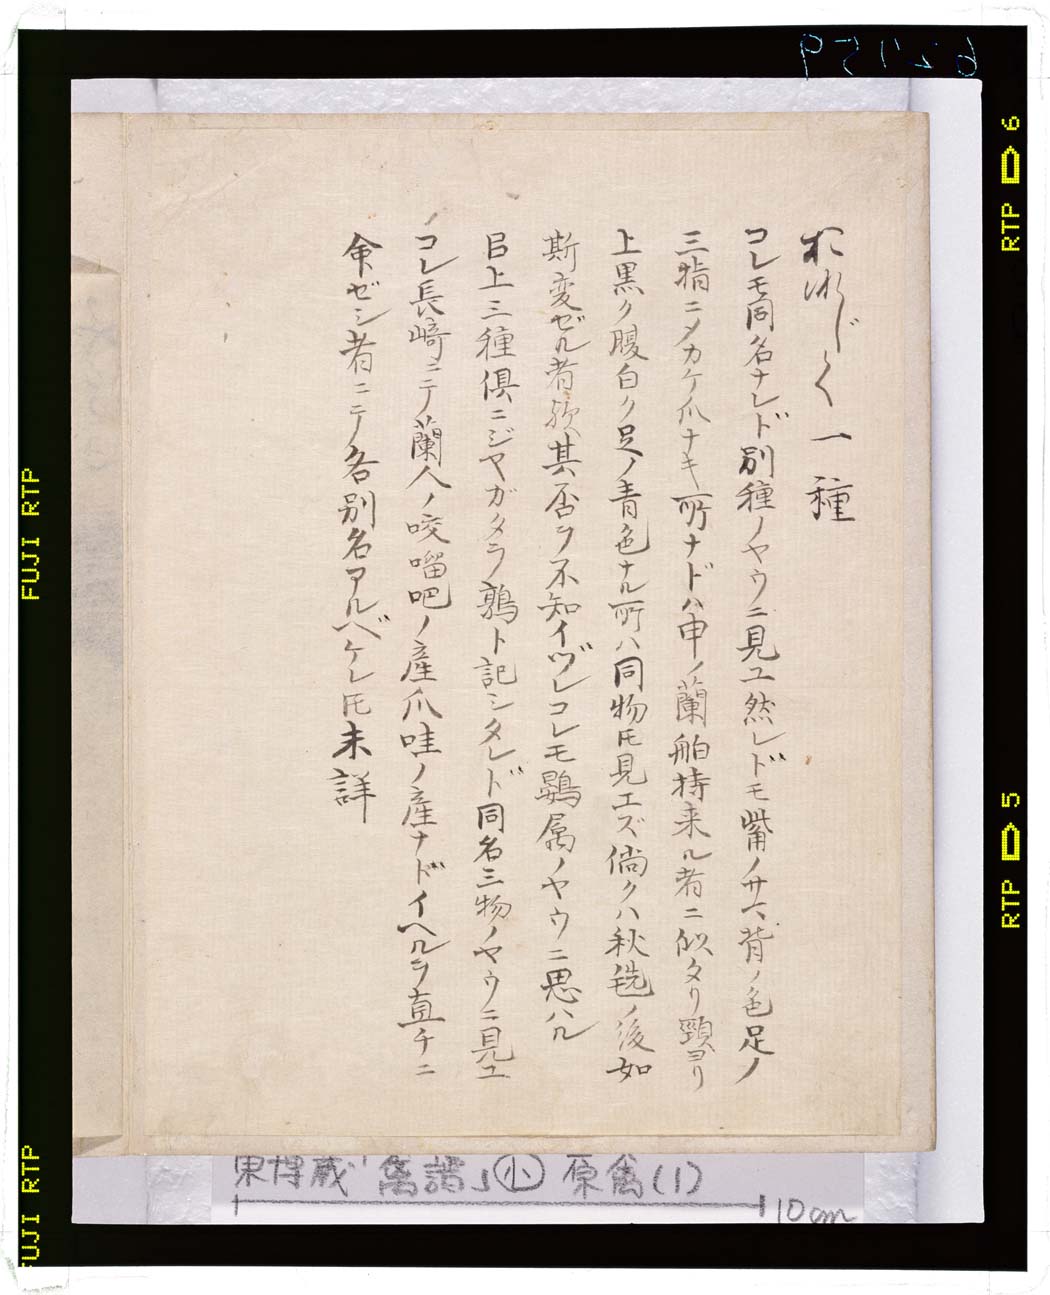 おなじく 一種
コレモ同名ナレド別種ノヤウニ見ユ然レドモ觜ノサマ背ノ色足ノ
三指ニメカケ爪ナキ所ナドハ申ノ蘭舶持来ル者ニ似タリ頸ヨリ
上黒ク腹白ク足ノ青色ナル所ハ同物トモ見エズ倘クハ秋毨ノ後如
斯変ゼル者歟其否ヲ不知イヅレコレモ鷃属ノヤウニ思ハル
㠯上三種倶ニジヤガタラノ鶉ト記シタレド同名三物ノヤウニ見ユ
コレ長﨑ニテ蘭人ノ咬𠺕吧ノ産爪哇ノ産ナドイヘルヲ直チニ
命ゼシ者ニテ各別名アルベケレ𪜈未詳
東博蔵「禽譜」小 原禽(1)
10cm
62759
RTP 6
RTP 5
FUJI RTP
FUJI RTP